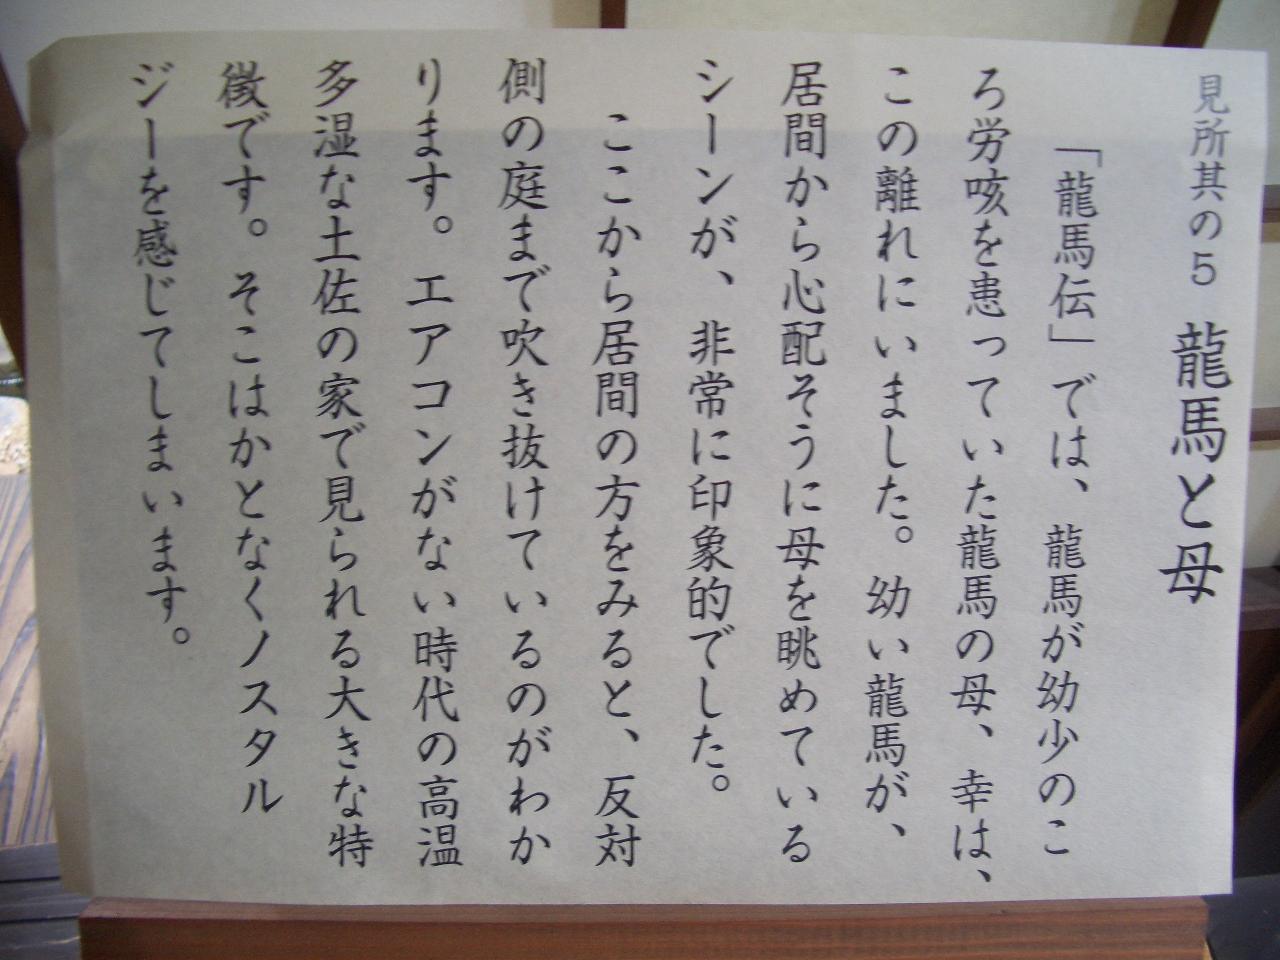 見所其の５　龍馬と母
「龍馬伝」では、龍馬が幼少のこ
ろ労咳を患っていた龍馬の母、幸は、
この離れにいました。幼い龍馬が、
居間から心配そうに母を眺めている
シーンが、非常に印象的でした。
ここから居間の方をみると、反対
側の庭まで吹き抜けているのがわか
ります。エアコンがない時代の高温
多湿な土佐の家で見られる大きな特
徴です。そこはかとなくノスタル
ジーを感じてしまいます。